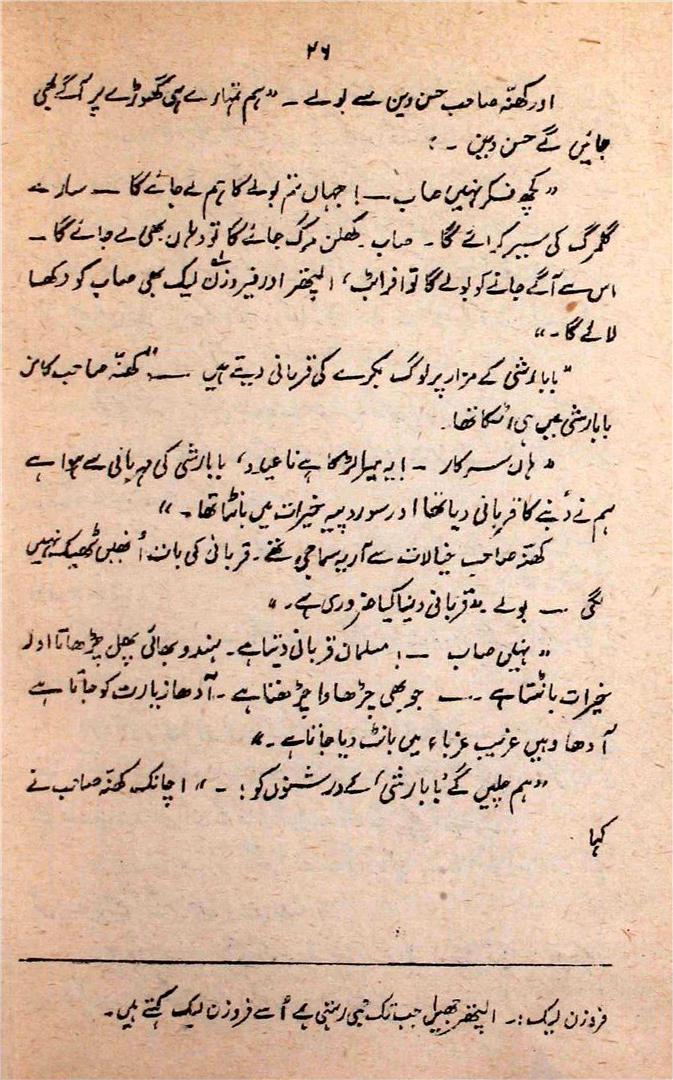 ۴۶
اور کھنّہ صاحب حسن دین سے بولے ۔ "ہم تمہارے ہی گھوڑے پر آگے بھی
جائیں گے حسن دین ۔ :
"کچھ فکر نہیں صاب ۔۔! جہاں تم بولے گا ہم لے جائے گا ۔۔ سارے
گلمرگ کی سیر کرائے گا ۔ صاب کھلن مرگ جائے گا تو وہاں بھی لے جائے گا ۔
اس سے آگے جانے کو بولے گا تو افراٹ، الپتھر اور فیروزن لیک بھی صاب کو دکھا
لائے گا ۔"
"بابا رشی کے مزار پر لوگ بکرے کی قربانی دیتے ہیں ۔۔" کھنّہ صاحب کا من
بابا رشی میں ہی اٹکا تھا ۔
"ہاں سرکار ۔! یہ میرا لڑکا ہے نا عیاد، بابا رشی کی مہربانی سے ہوا ہے
ہم نے دُنبے کا قربانی دیا تھا اور سو روپیہ خیرات میں بانٹا تھا ۔"
کھنّہ صاحب خیالات سے آریہ سماجی تھے ۔ قربانی کی بات اُنھیں ٹھیک نہیں
لگی ۔۔ بولے "قربانی دینا کیا ضروری ہے ۔"
"نہیں صاب ۔۔! مسلمان قربانی دیتا ہے ۔ ہندو بھائی پھل چڑھاتا اور
خیرات بانٹتا ہے ۔۔ جو بھی چڑھاوا چڑھتا ہے ۔ آدھا زیارت کو جاتا ہے
آدھا وہیں غریب غرباء میں بانٹ دیا جاتا ہے ۔"
"ہم چلیں گے 'بابا رشی' کے درشنوں کو ! ۔" اچانک کھنّہ صاحب نے
کہا
فروزن لیک :۔ الپتھر جھیل جب تک جمی رہتی ہے اُسے فروزن لیک کہتے ہیں ۔